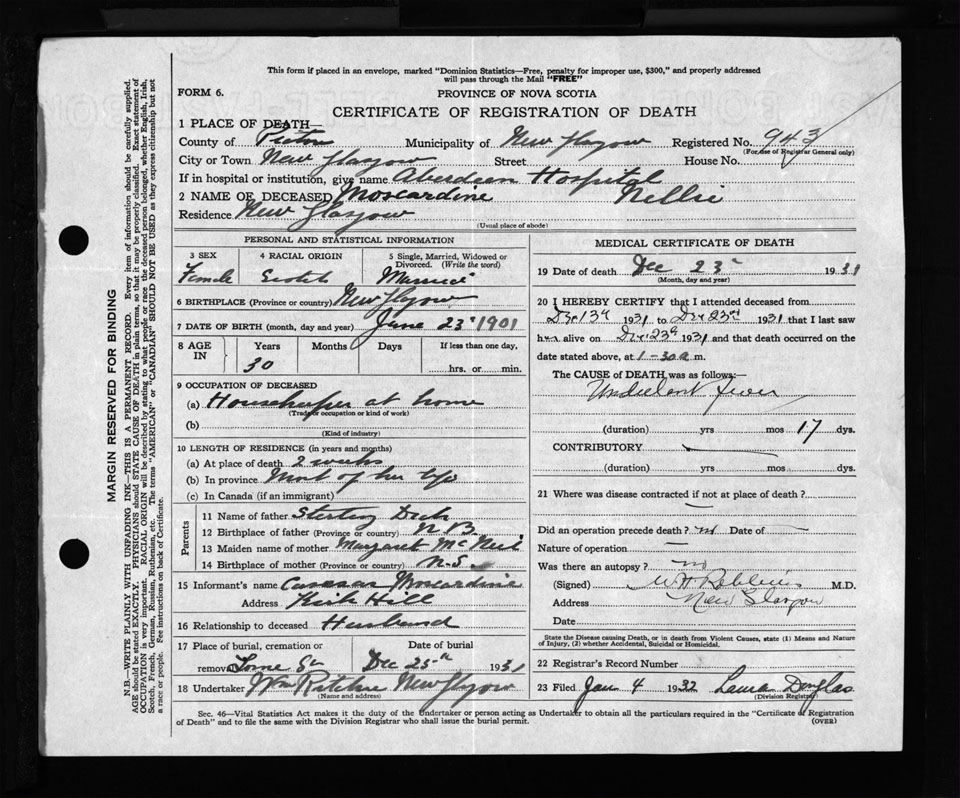 This form if placed in an envelope, marked "Dominion Statistics—Free, penalty for improper use, $300," and properly addressed
will pass through the Mail "FREE"
FORM 6.
PROVINCE OF NOVA SCOTIA
CERTIFICATE OF REGISTRATION OF DEATH
1 PLACE OF DEATH—
County of Pictou Municipality of New Glasgow Registered No. 943
(For use of Registrar General only)
City or Town New Glasgow Street House No.
If in hospital or institution, give name Aberdeen Hospital
2 NAME OF DECEASED Moscardine Nellie
Residence New Glasgow
(Usual place of abode)
PERSONAL AND STATISTICAL INFORMATION
3 SEX 4 RACIAL ORIGIN 5 Single, Married, Widowed or Divorced. (Write the word)
Female Scotch Married
6 BIRTHPLACE (Province or country) New Glasgow
7 DATE OF BIRTH (month, day and year) June 23 1901
8 AGE IN Years Months Days If less than one day,
30 hrs. or min.
9 OCCUPATION OF DECEASED
(a) Housekeeper at home
(Trade or occupation or kind of work)
(b)
(Kind of industry)
10 LENGTH OF RESIDENCE (in years and months)
(a) At place of death 2 weeks
(b) In province Most of her life
(c) In Canada (if an immigrant)
Parents
11 Name of father Sterling
12 Birthplace of father (Province or country) N B
13 Maiden name of mother Margaret McNeil
14 Birthplace of mother (Province or country) N.S.
15 Informant's name Moscardine
Address Kirk Hill
16 Relationship to deceased Husband
17 Place of burial, cremation or removal Date of burial
Lorne Dec 25th 1931
18 Undertaker Wm Ritchie New Glasgow
(Name and address)
MEDICAL CERTIFICATE OF DEATH
19 Date of death Dec 23 1931
(Month, day and year)
20 I HEREBY CERTIFY that I attended deceased from
Dec 13th 1931 to Dec 23rd 1931 that I last saw
her alive on Dec 23rd 1931 and that death occurred on the
date stated above, at 1-30 a m.
The CAUSE of DEATH was as follows:
Undulant fever
(duration) yrs mos 17 dys.
CONTRIBUTORY
(duration) yrs mos dys.
21 Where was disease contracted if not at place of death?
Did an operation precede death? no Date of
Nature of operation
Was there an autopsy? no
(Signed) M.D.
Address New Glasgow
Date
State the Disease causing Death, or in death from Violent Causes, state (1) Means and Nature
of Injury, (2) whether Accidental, Suicidal or Homicidal.
22 Registrar's Record Number
23 Filed Jan 4 1932 Laura Douglas
(Division Registrar)
Sec. 46—Vital Statistics Act makes it the duty of the Undertaker or person acting as Undertaker to obtain all the particulars required in the "Certificate of Registration
of Death" and to file the same with the Division Registrar who shall issue the burial permit.
(OVER)
MARGIN RESERVED FOR BINDING
N.B.—WRITE PLAINLY WITH UNFADING INK—THIS IS A PERMANENT RECORD. Every item of information should be carefully supplied.
AGE should be stated EXACTLY. PHYSICIANS should STATE CAUSE OF DEATH in plain terms, so that it may be properly classified. Exact statement of
OCCUPATION is very important. RACIAL ORIGIN will be described by stating to what people or race the deceased person belonged, whether English, Irish,
Scotch, French, German, Russian, Ruthenian, etc. The terms "AMERICAN" or "CANADIAN" SHOULD NOT BE USED as they express citizenship but not
a race or people. See instructions on back of Certificate.